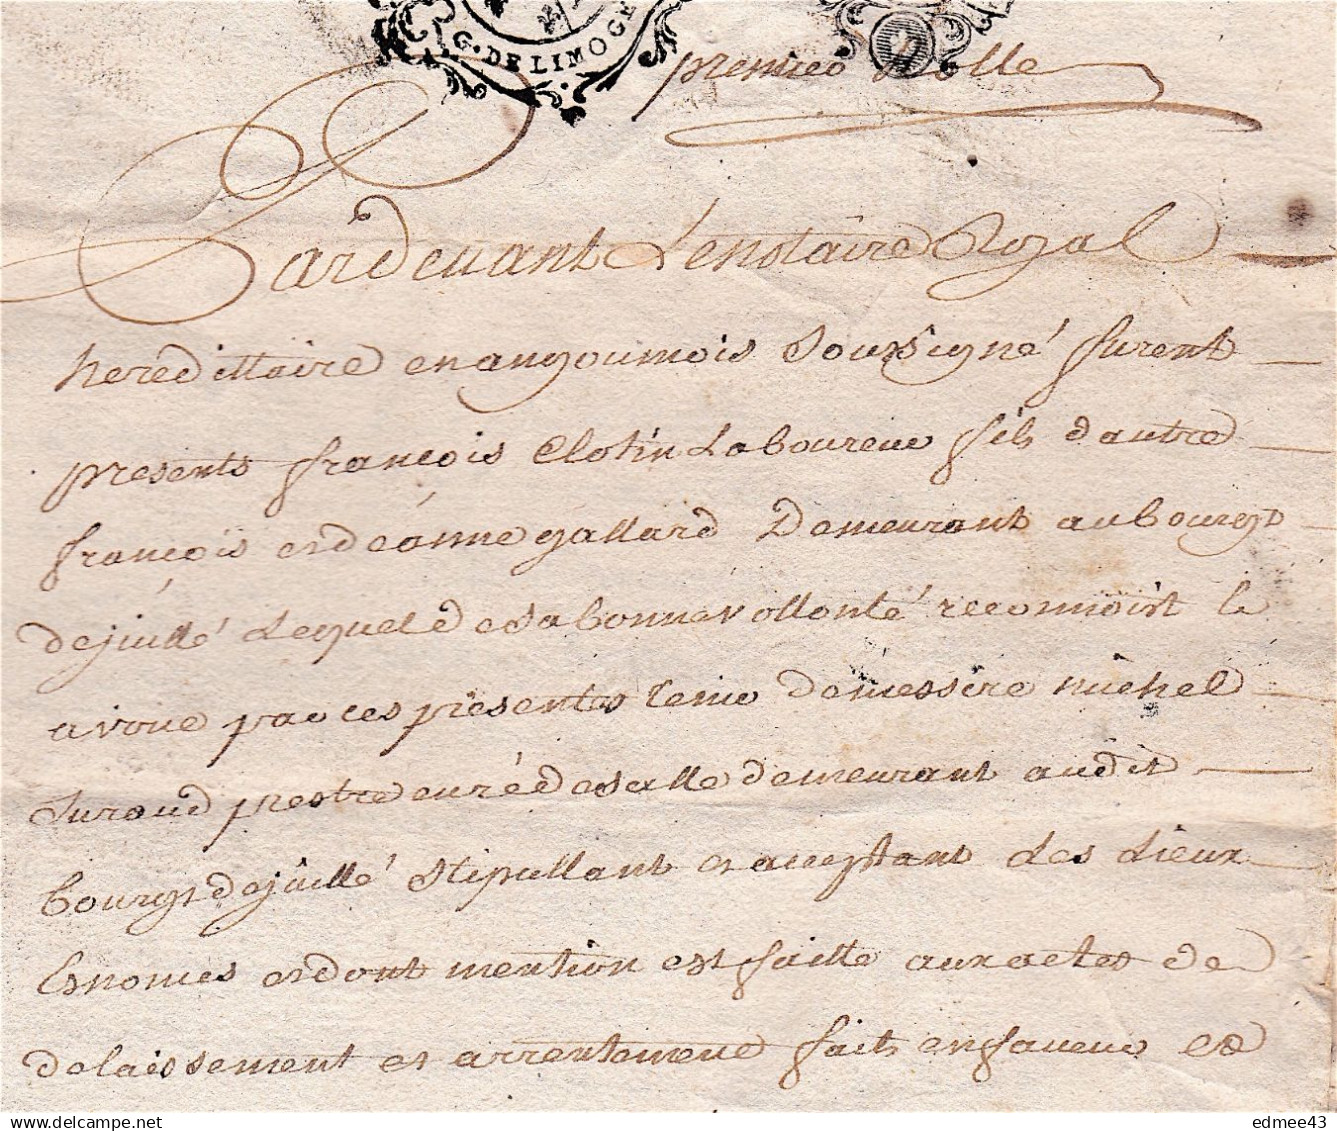 G. DE LIMOGE
premier Rolle
Pardevant Le notaire Royal
heredittaire en angoumois Soussigné furent
presents françois Clotin Laboureur fils d'autre
françois et de anne gallard Demeurant au bourgt
de juillé Lequel de sa bonne vollonté reconnoist
avoue par ces presentes tenir de messire michel
prestre curé de salle demeurant audit
bourgt de juillé stipullant et acceptant des Lieux
Et nomes et dont mention est faitte aux actes de
delaissement et arrentement faits en faveur
edmee43